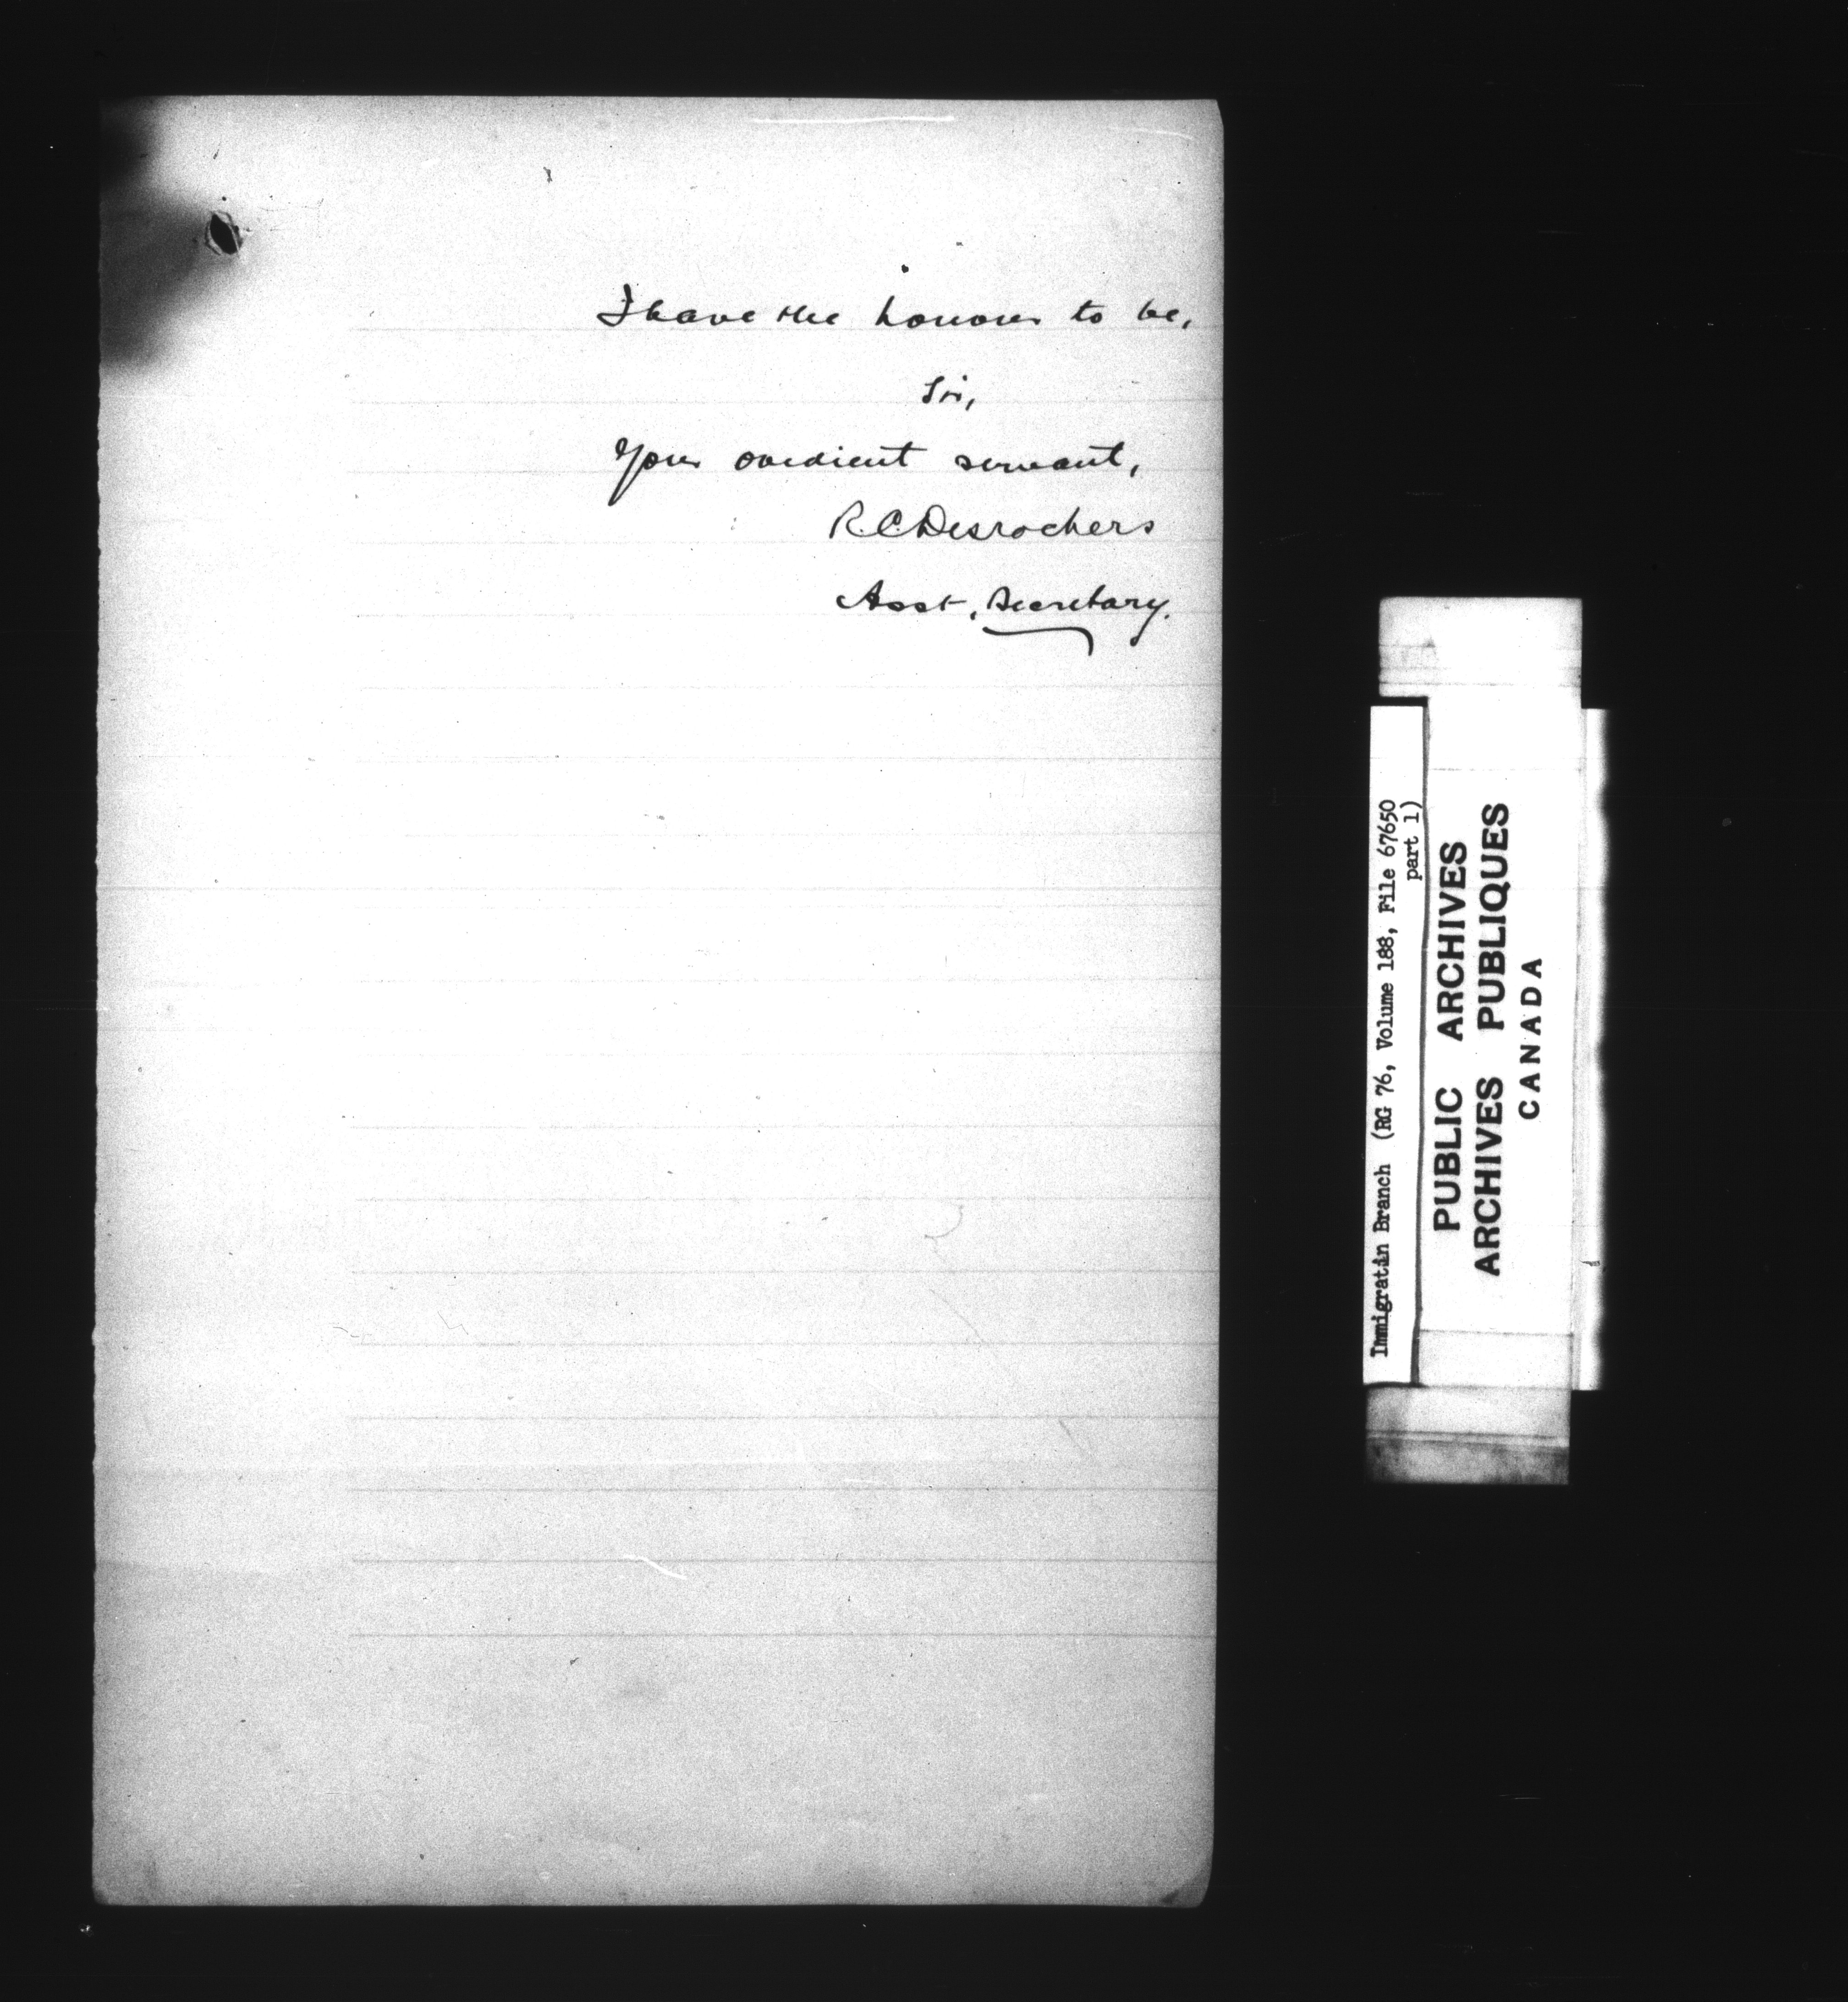 I have the honour to be,
Sir,
Your obedient servant,
R.C. Desrochers
Asst. Secretary.
Immigratin Branch (RG 76, Volume 188, File 67650
part 1)
PUBLIC ARCHIVES
ARCHIVES PUBLIQUES
CANADA